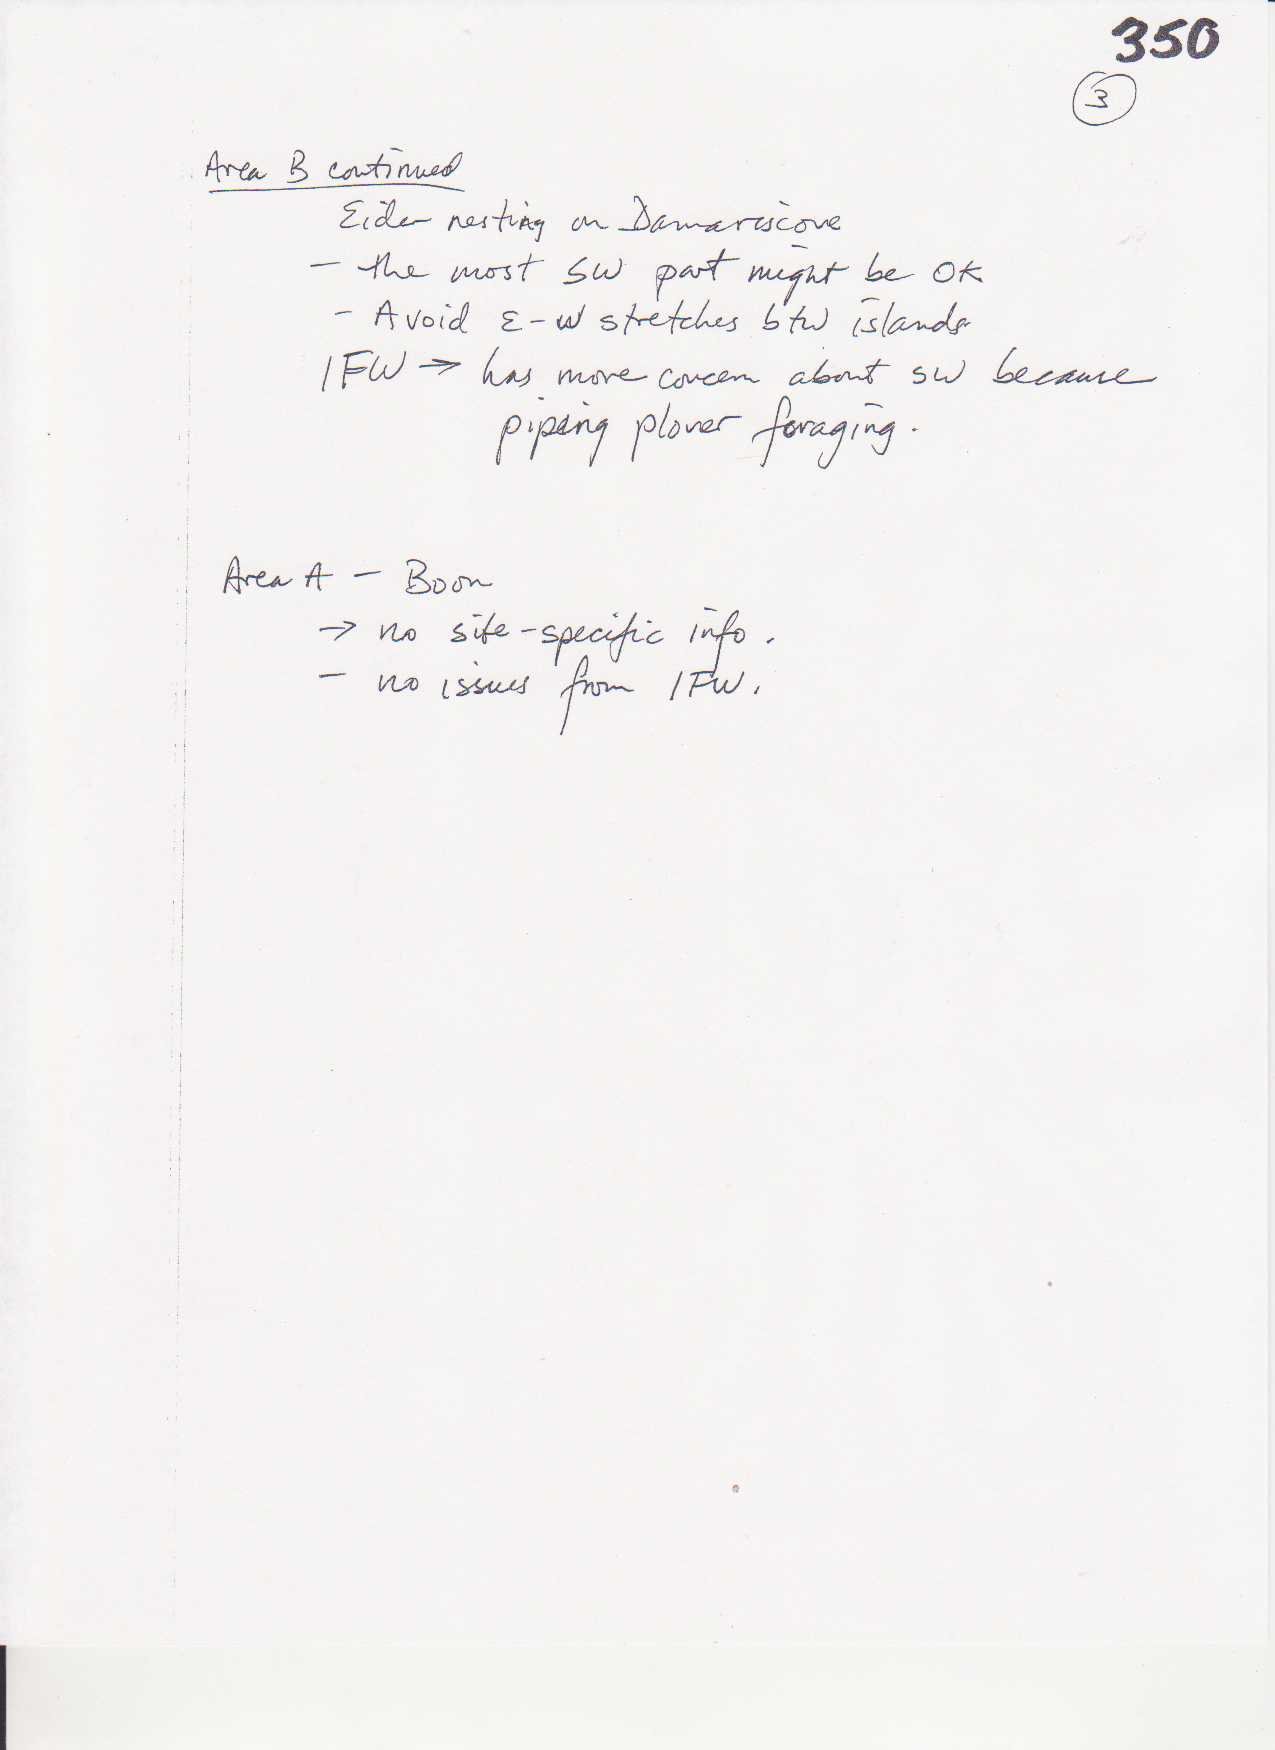 350
3
Area B continued
Eider nesting on Damariscove
- the most SW part might be OK
- Avoid E-W stretches btw islands
IFW → has more concern about SW because
piping plover foraging.
Area A - Boon
→ no site-specific info.
- no issues from IFW.